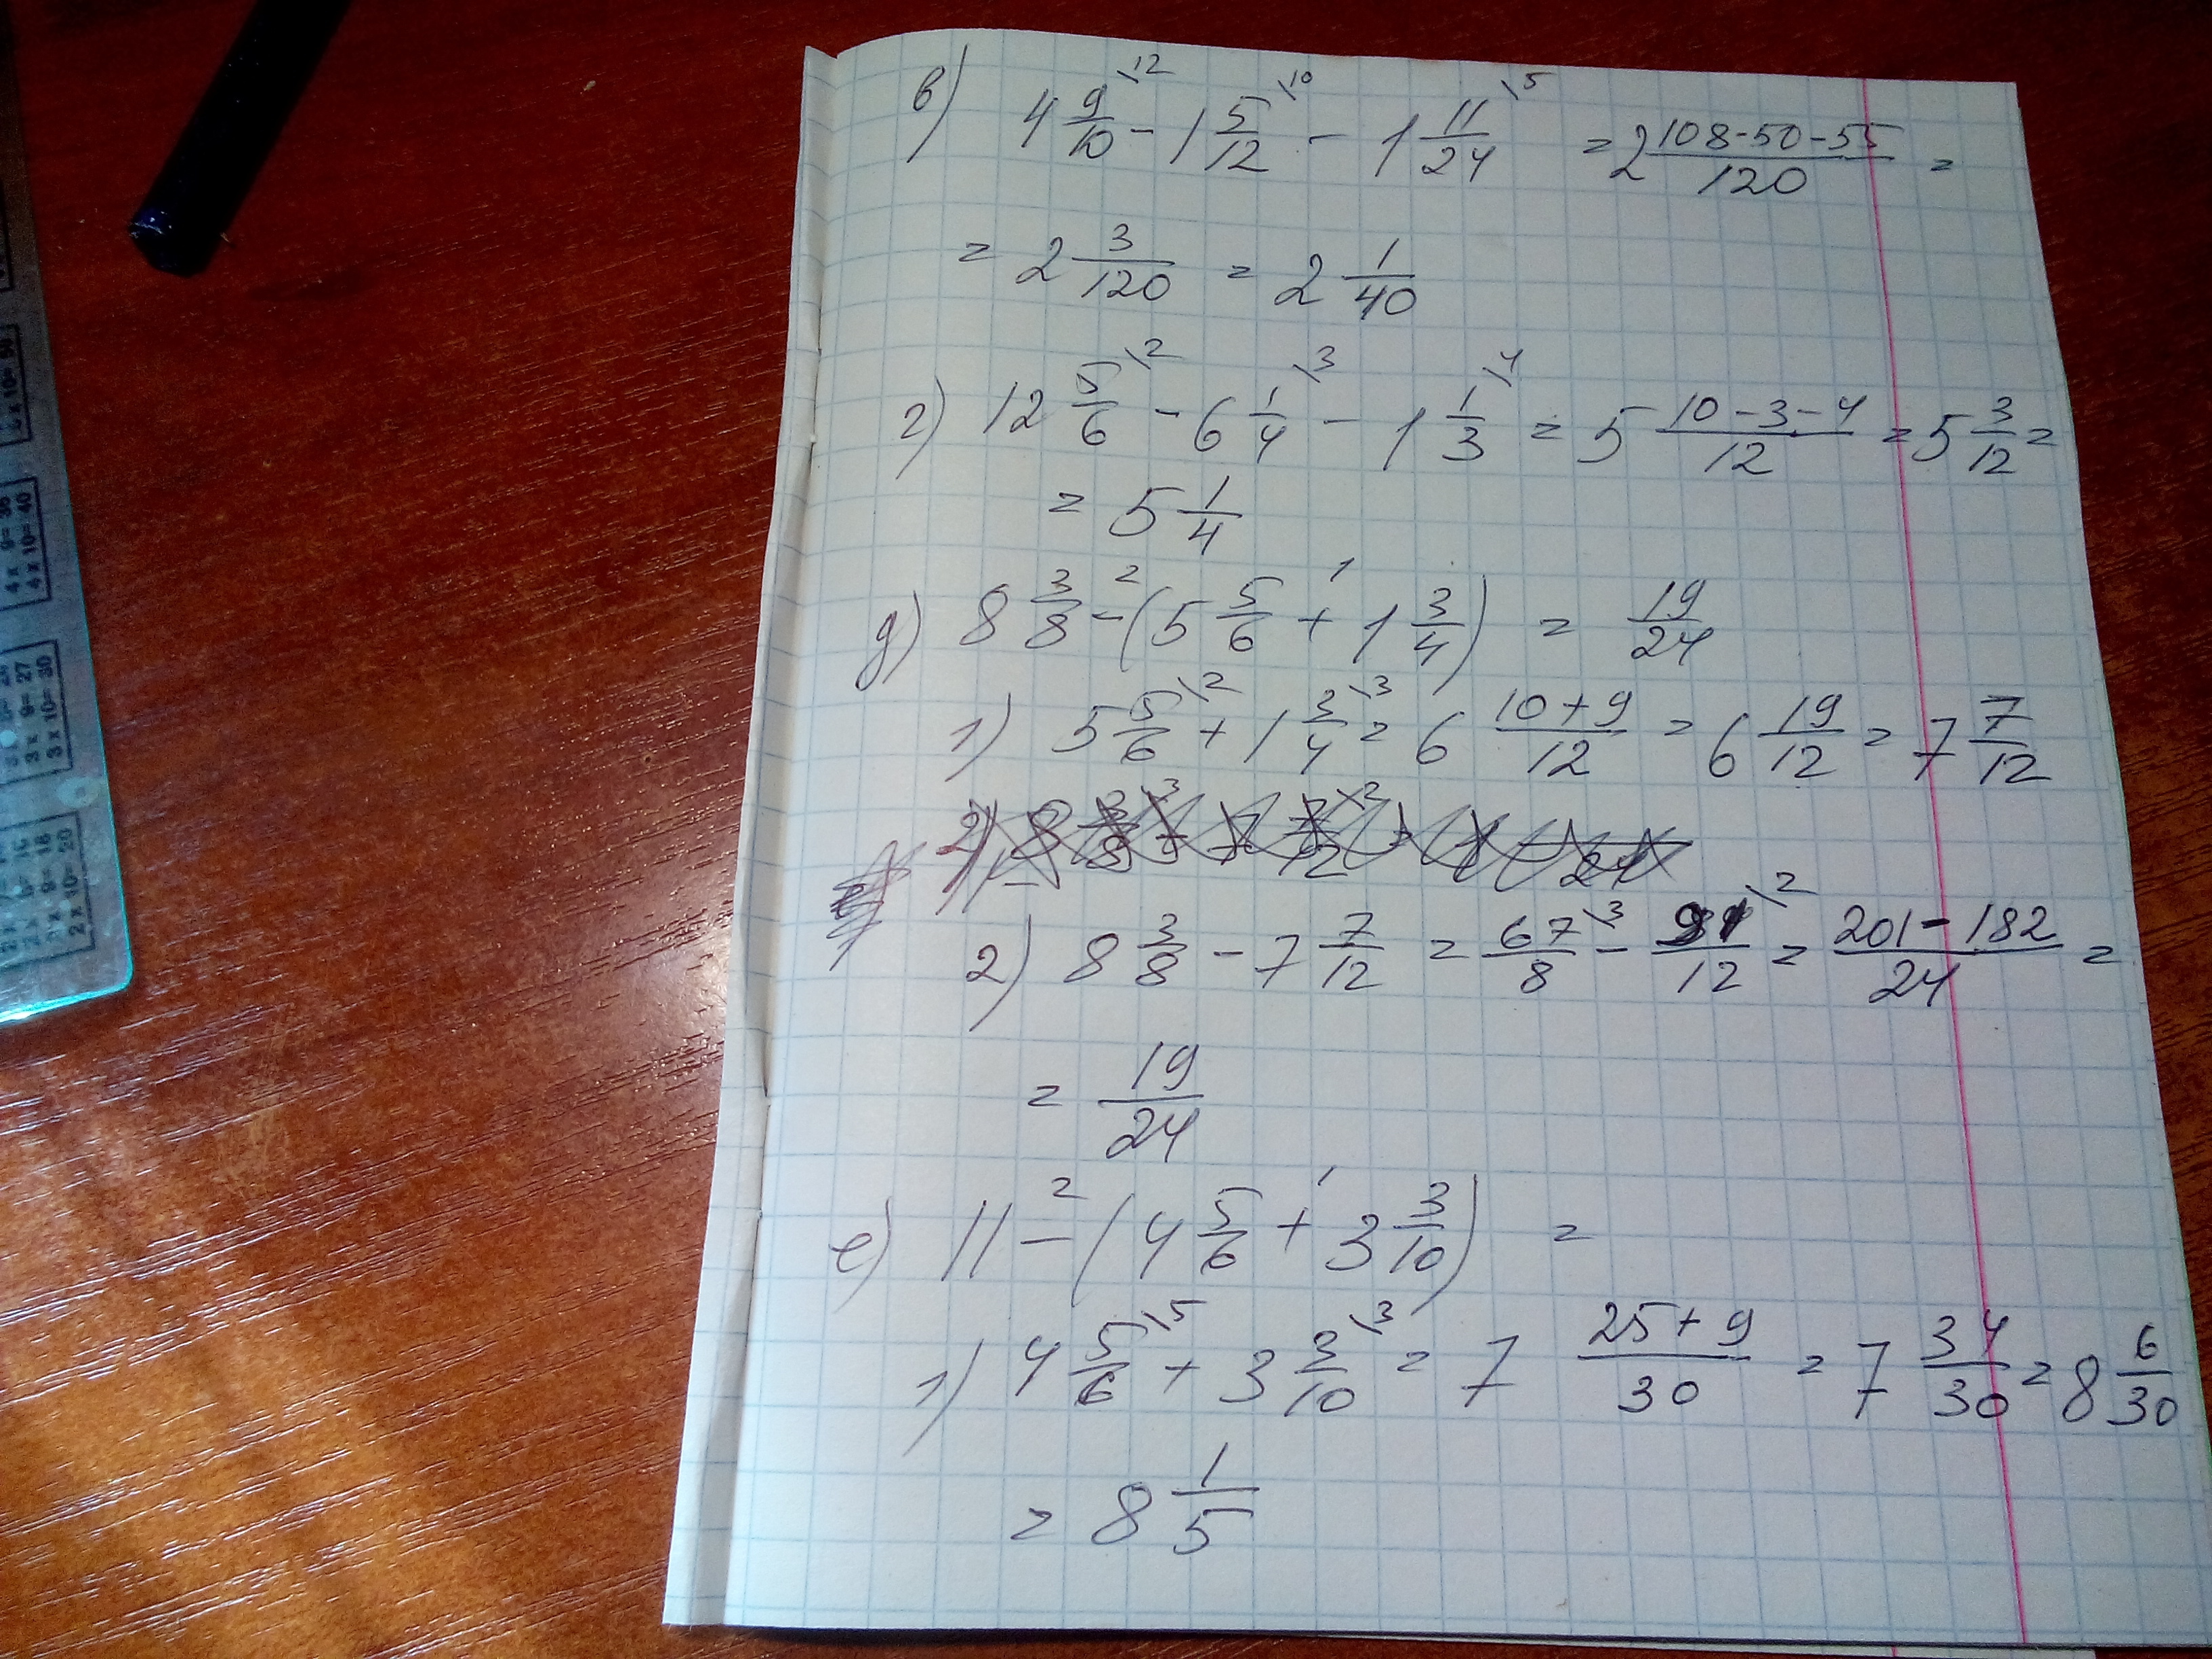 в) 4 9/10 \12 - 1 5/12 \10 - 1 11/24 \5 = 2 108-50-55/120 =
= 2 3/120 = 2 1/40
г) 12 5/6 \2 - 6 1/4 \3 - 1 1/3 \4 = 5 10-3-4/12 = 5 3/12 =
= 5 1/4
д) 8 3/8 -² (5 5/6 +¹ 1 3/4) = 19/24
1) 5 5/6 \2 + 1 3/4 \3 = 6 10+9/12 = 6 19/12 = 7 7/12
2) 8 3/8 - 7 7/12 = 67/8 \3 - 91/12 \2 = 201-182/24 =
= 19/24
е) 11 -² (4 5/6 +¹ 3 3/10) =
1) 4 5/6 \5 + 3 3/10 \3 = 7 25+9/30 = 7 34/30 = 8 6/30
= 8 1/5
4 x 9= 36
4 x 10= 40
3 x 9= 27
3 x 10= 30
2 x 9= 18
2 x 10= 20